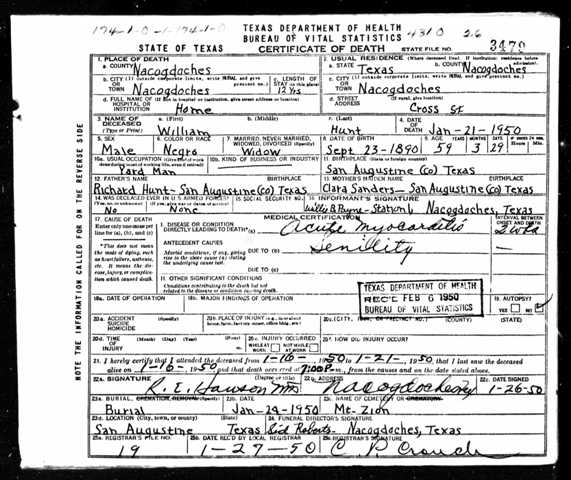 174-1-0-1-174-1-0
TEXAS DEPARTMENT OF HEALTH
BUREAU OF VITAL STATISTICS
4310 26
STATE OF TEXAS
CERTIFICATE OF DEATH
STATE FILE NO. 3479
1. PLACE OF DEATH
a. COUNTY Nacogdoches
2. USUAL RESIDENCE (Where deceased lived. If institution: residence before admission)
a. STATE Texas b. COUNTY Nacogdoches
b. CITY (If outside corporate limits, write RURAL and give precinct no.)
OR
TOWN Nacogdoches
c. LENGTH OF STAY (in this place) 12 Yrs
c. CITY (If outside corporate limits, write RURAL and give precinct no.)
OR
TOWN Nacogdoches
d. FULL NAME OF (If not in hospital or institution, give street address or location)
HOSPITAL OR
INSTITUTION Home
d. STREET ADDRESS (If rural, give location)
Cross St
3. NAME OF DECEASED (Type or Print)
a. (First) William b. (Middle) c. (Last) Hunt
4. DATE OF DEATH Jan-21-1950
5. SEX Male
6. COLOR OR RACE Negro
7. MARRIED, NEVER MARRIED, WIDOWED, DIVORCED (Specify) Widow
8. DATE OF BIRTH Sept 23-1890
9. AGE YEARS 59 MONTHS 3 DAYS 29
10a. USUAL OCCUPATION Yard Man
10b. KIND OF BUSINESS OR INDUSTRY
11. BIRTHPLACE (State or foreign country)
San Augustine (co) Texas
12. FATHER'S NAME BIRTHPLACE
Richard Hunt- San Augustine (co) Texas
13. MOTHER'S MAIDEN NAME BIRTHPLACE
Clara Sanders- San Augustine (co) Texas
14. WAS DECEASED EVER IN U.S. ARMED FORCES?
No None
15. SOCIAL SECURITY NO.
16. INFORMANT'S SIGNATURE
Nacogdoches, Texas
17. CAUSE OF DEATH
Enter only one cause per line for (a), (b), and (c)
*This does not mean the mode of dying, such as heart failure, asthenia, etc. It means the disease, injury, or complication which caused death.
MEDICAL CERTIFICATION
INTERVAL BETWEEN ONSET AND DEATH
I. DISEASE OR CONDITION DIRECTLY LEADING TO DEATH* (a) Acute myocarditis
ANTECEDENT CAUSES
Morbid conditions, if any, giving rise to the above cause (a) stating the underlying cause last.
DUE TO (b) Senility
DUE TO (c)
II. OTHER SIGNIFICANT CONDITIONS
Conditions contributing to the death but not related to the disease or condition causing death.
TEXAS DEPARTMENT OF HEALTH
REC'D FEB 6 1950
BUREAU OF VITAL STATISTICS
18a. DATE OF OPERATION
18b. MAJOR FINDINGS OF OPERATION
19. AUTOPSY?
YES NO
20a. ACCIDENT SUICIDE HOMICIDE (Specify)
20b. PLACE OF INJURY
(COUNTY) (STATE)
20d. TIME OF INJURY (Month) (Day) (Year) (Hour)
20e. INJURY OCCURRED
WHILE AT WORK NOT WHILE AT WORK
20f. HOW DID INJURY OCCUR?
21. I hereby certify that I attended the deceased from 1-16-, 1950, to 1-21-, 1950, that I last saw the deceased
alive on 1-16-, 1950, and that death occurred at 7:00 P.m., from the causes and on the date stated above.
22a. SIGNATURE (Degree or title)
22b. ADDRESS Nacogdoches
22c. DATE SIGNED 1-26-50
23a. BURIAL, CREMATION, REMOVAL (Specify) Burial
23b. DATE Jan-24-1950
23c. NAME OF CEMETERY OR CREMATORY Mt. Zion
23d. LOCATION (City, town, or county) (State)
San Augustine Texas
24. FUNERAL DIRECTOR'S SIGNATURE
Sid Roberts- Nacogdoches, Texas
25a. REGISTRAR'S FILE NO. 19
25b. DATE REC'D BY LOCAL REGISTRAR 1-27-50
25c. REGISTRAR'S SIGNATURE
C. P. Crouch
NOTE THE INFORMATION CALLED FOR ON THE REVERSE SIDE